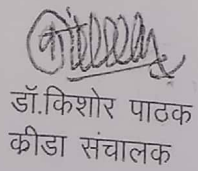 डॉ.किशोर पाठक
क्रीडा संचालक